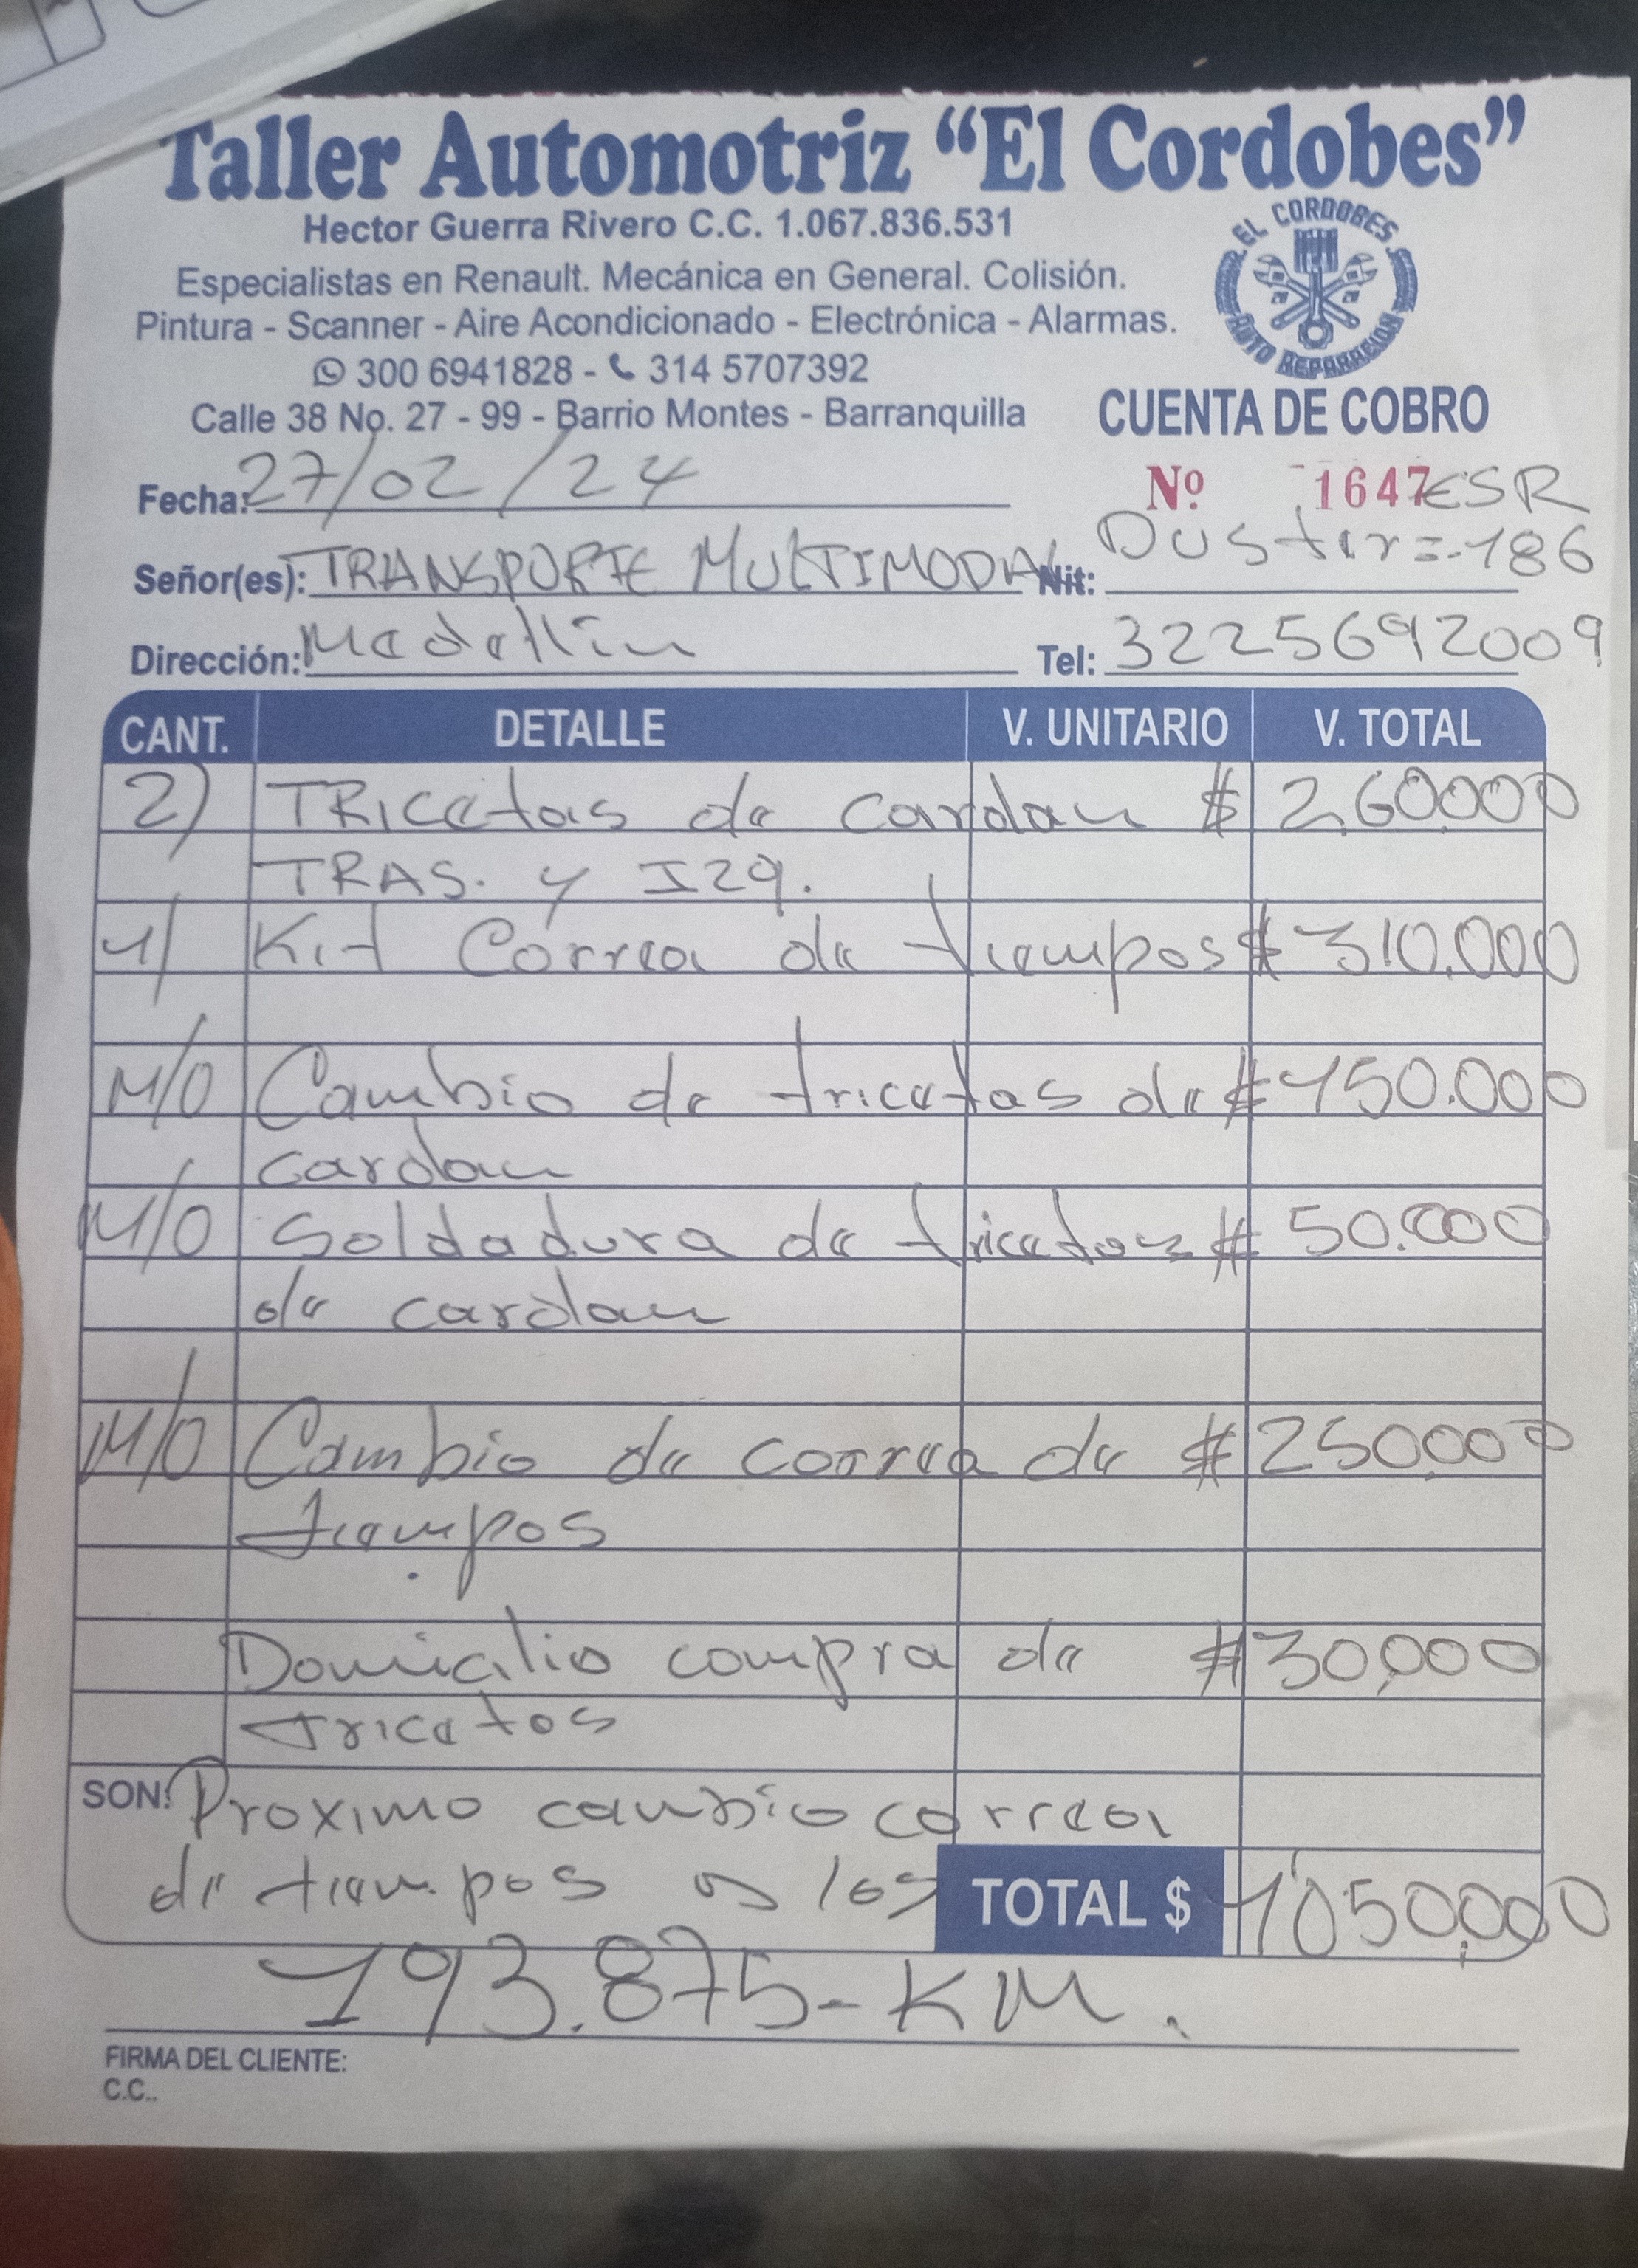 Taller Automotriz “El Cordobes”
Hector Guerra Rivero C.C. 1.067.836.531
Especialistas en Renault. Mecánica en General. Colisión.
Pintura - Scanner - Aire Acondicionado - Electrónica - Alarmas.
300 6941828 - 314 5707392
Calle 38 No. 27 - 99 - Barrio Montes - Barranquilla
EL CORDOBES
AUTO REPARACION
CUENTA DE COBRO
Fecha: 27/02/24
Nº 1647 ESR
Señor(es): TRANSPORTE MULTIMODAL Nit: Duster=-186
Dirección: Medellin Tel: 3225692009
CANT. DETALLE V. UNITARIO V. TOTAL
2) TRicetas de cardan $ 260.000
TRAS. y Izq.
1/ Kit Correa de tiempos $ 310.000
M/O Cambio de tricetas de $ 150.000
cardan
M/O Soldadura de tricetas $ 50.000
de cardan
M/O Cambio de correa de $ 250.000
tiempos
Domicilio compra de $ 30.000
tricetas
SON: Proximo cambio correa
de tiempos a los
TOTAL $ 1'050.000
193.875-KM.
FIRMA DEL CLIENTE:
C.C..